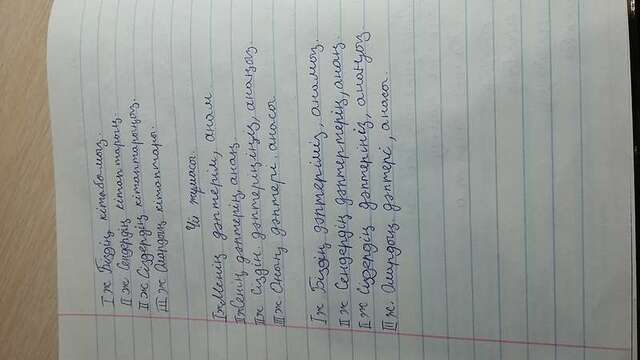 I ж Біздің кітабымыз.
II ж Сендердің кітаптарың.
II ж Сіздердің кітаптарыңыз.
III ж Олардың кітаптары.
Үй жұмасы.
I ж Менің дәптерім, анам
II ж Сенің дәптерің, анаң.
II ж Сіздің дәптеріңіңіз, анаңыз.
III ж Оның дәптері. анасы
I ж Біздің дәптеріміз, анамыз.
II ж Сендердің дәптертерің, анаң.
II ж Сіздердің дәптерініз, анаңыз
III ж. Олардың дәптері, анасы.